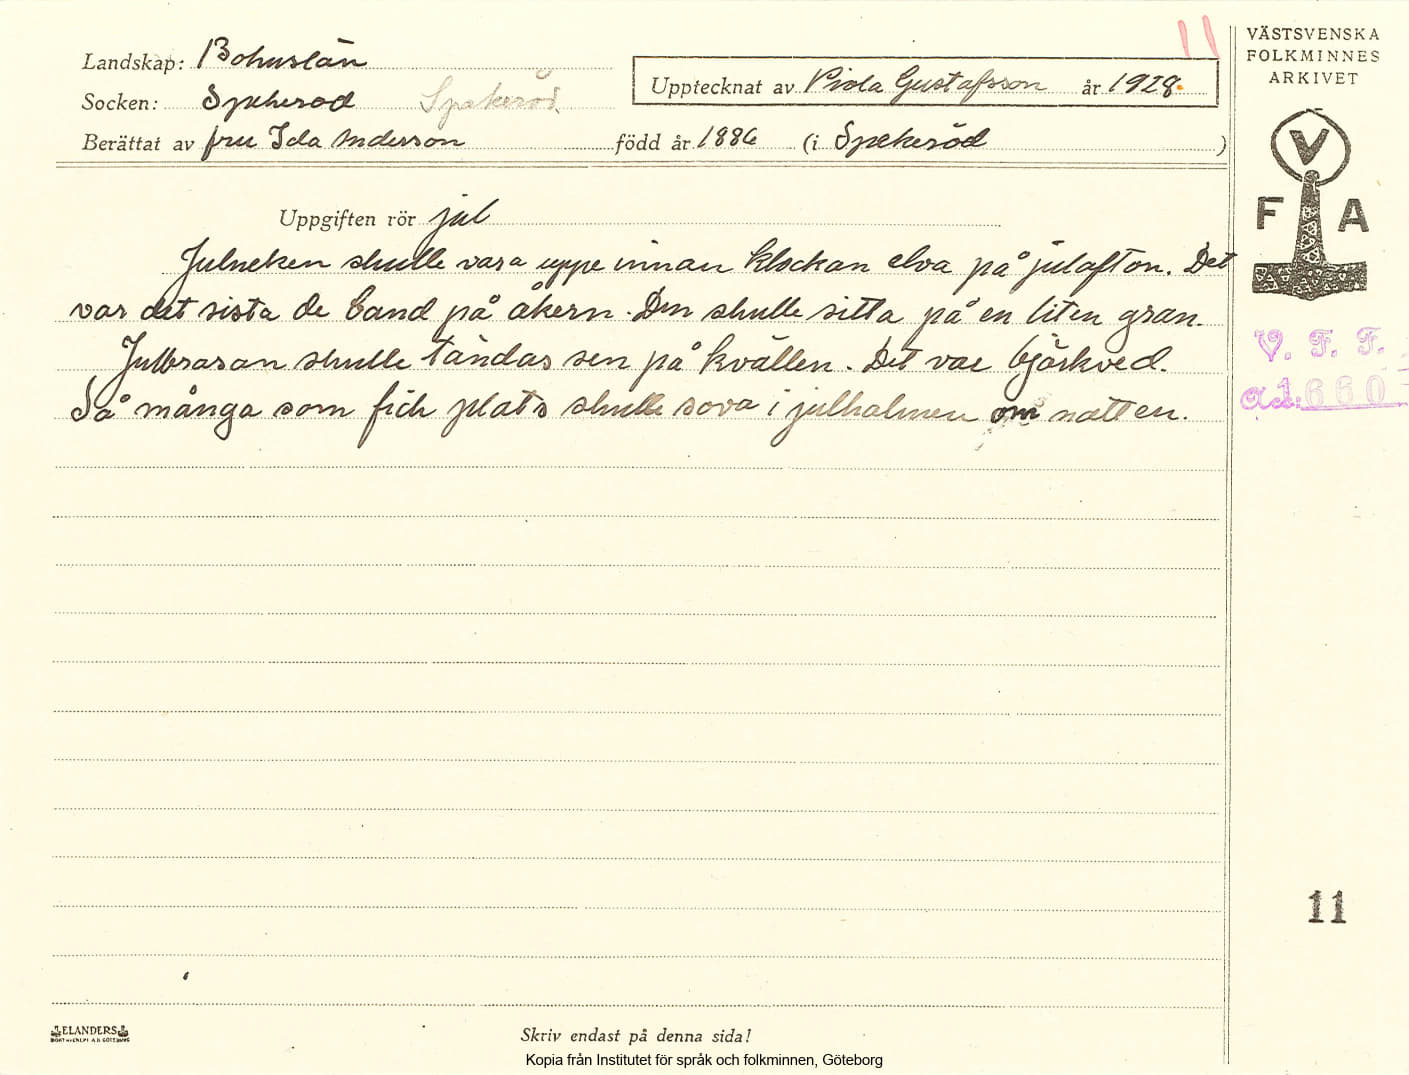 11
VÄSTSVENSKA
FOLKMINNES
ARKIVET
Landskap: Bohuslän
Upptecknat av Viola Gustafsson år 1928.
Socken: Spekeröd Spekeröd
Berättat av fru Ida Anderson född år 1886 (i Spekeröd)
V
F A
Uppgiften rör jul
Julneken skulle vara uppe innan klockan elva på julafton. Det
var det sista de band på åkern. Den skulle sitta på en liten gran.
Julbrasan skulle tändas sen på kvällen. Det var björkved.
Så många som fick plats skulle sova i julhalmen om natten.
V. F. F.
Acc: 660
11
ELANDERS
Skriv endast på denna sida!
Kopia från Institutet för språk och folkminnen, Göteborg